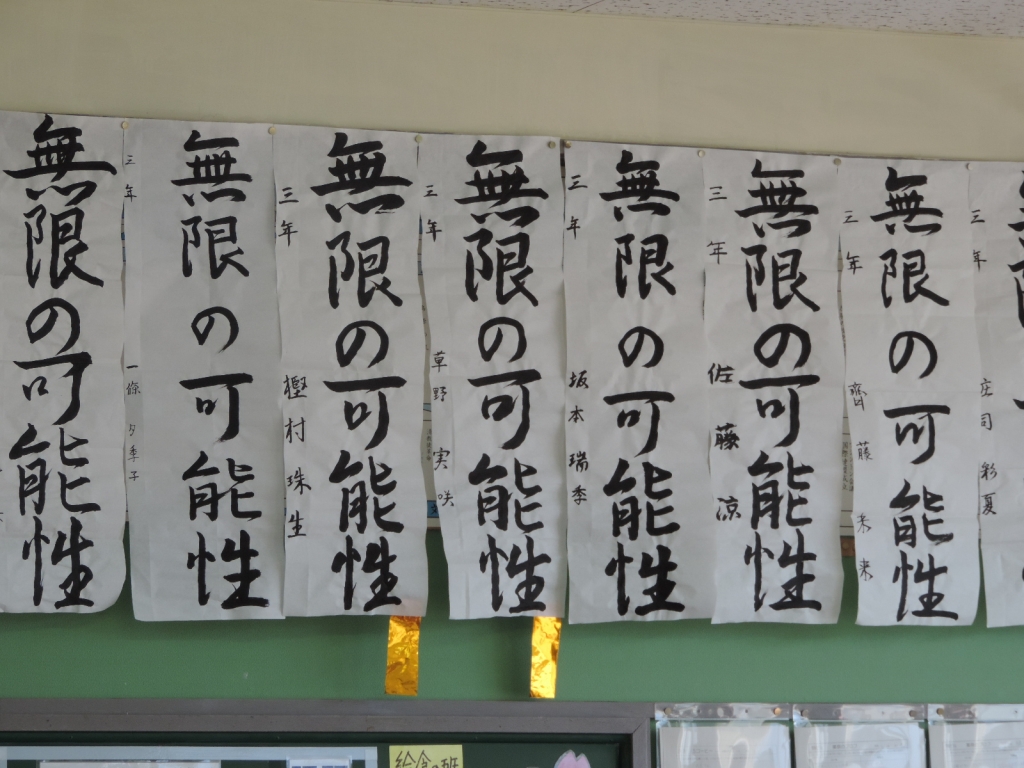 無限の可能性
三年 一條 夕季子
無限の可能性
三年 樫村 珠生
無限の可能性
三年 草野 実咲
無限の可能性
三年 坂本 瑞季
無限の可能性
三年 佐藤 涼
無限の可能性
三年 齋藤 未来
無限の可能性
三年 庄司 彩夏
給食の班